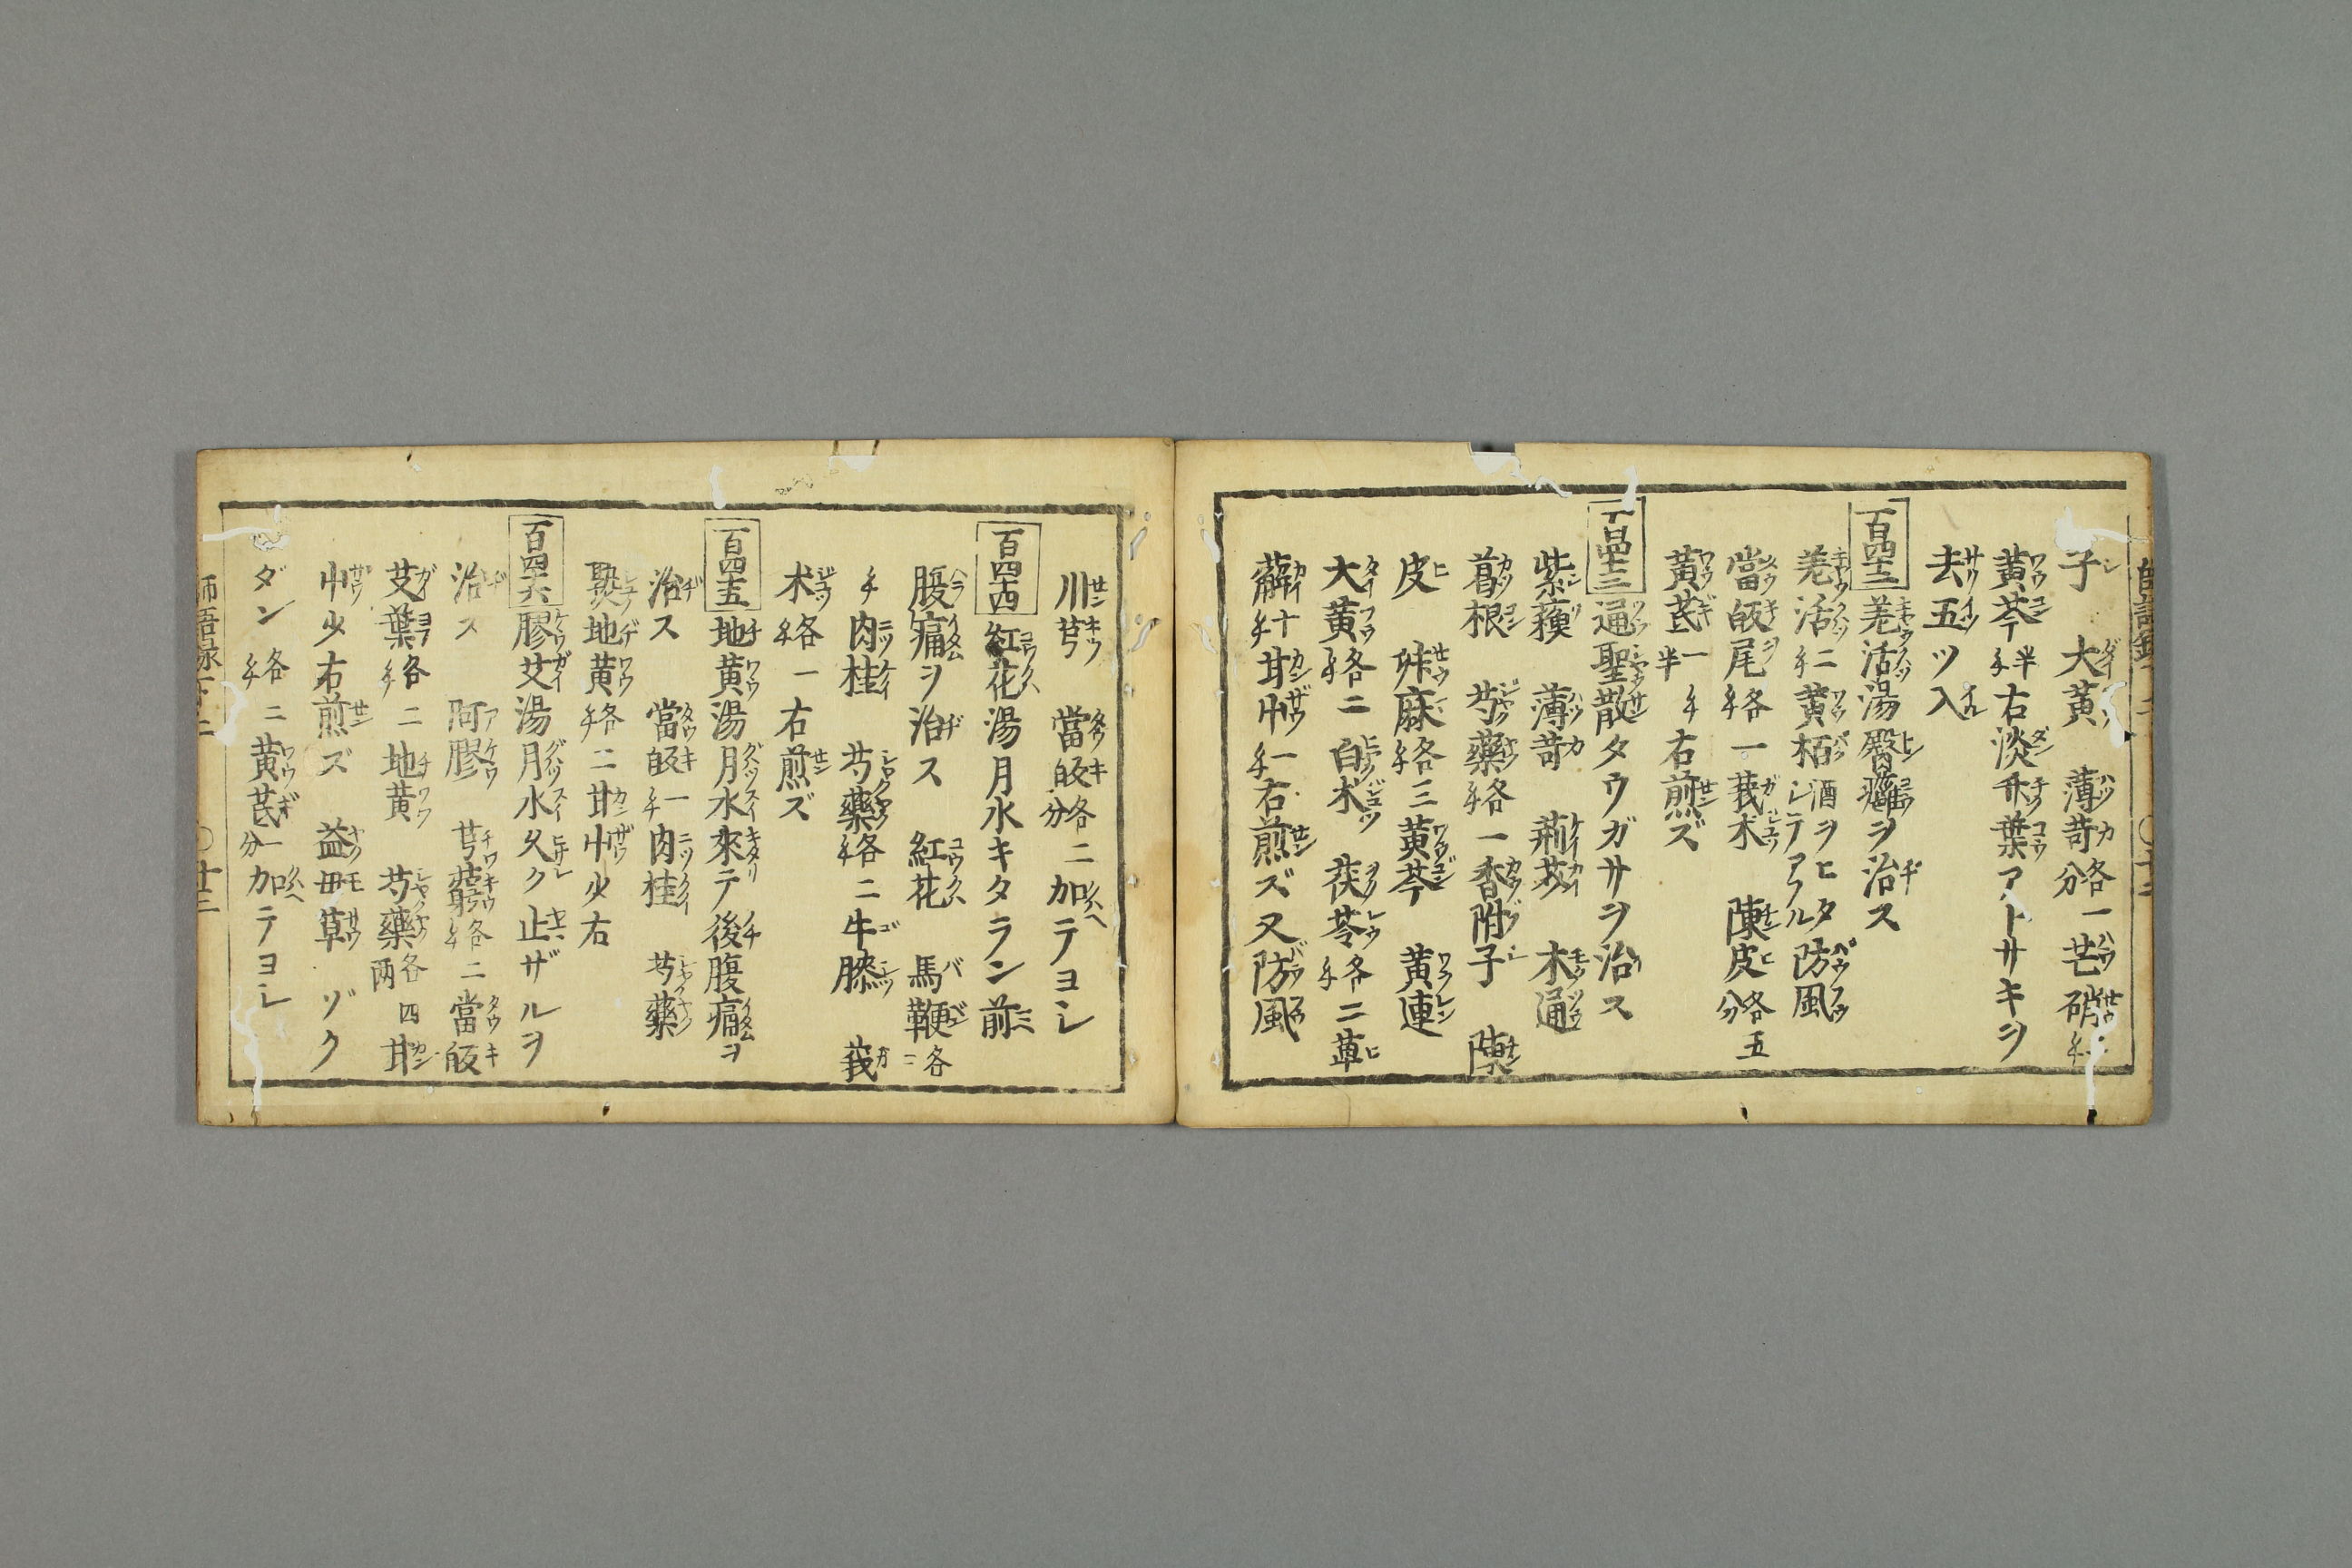 子 大黄 薄苛各一分 芒硝
黄芩半 右淡竹葉アトサキヲ
去五ツ入
百四十二 羌活湯臀癰ヲ治ス
羌活二 黄栢酒ヲヒタシテアフル 防風
當皈尾各一 莪朮 陳皮各五分
黄芪一半 右煎ズ
百四十三 通聖散タウガサヲ治ス
紫蘇 薄苛 荊芥 木通
葛根 芍藥各一 香附子 陳
皮 升麻各三 黄芩 黄連
大黄各二 白朮 茯苓各二 萆
薢十 甘艸一 右煎ズ又防風
川芎 當皈各二分 加テヨシ
百四十四 紅花湯月水キタラン前ニ
腹痛ヲ治ス 紅花 馬鞭各二
肉桂 芍藥各二 牛膝 莪
朮各一 右煎ズ
百四十五 地黄湯月水來テ後腹痛ヲ
治ス 當皈一 肉桂 芍藥
熟地黄各二 甘艸少 右
百四十六 膠艾湯月水久ク止ザルヲ
治ス 阿膠 芎藭各二 當皈
艾葉各二 地黄 芍藥各四両 甘
艸少 右煎ズ 益母草 ゾク
ダン各二 黄芪一分 加テヨシ
師語録下 二 ○廿三